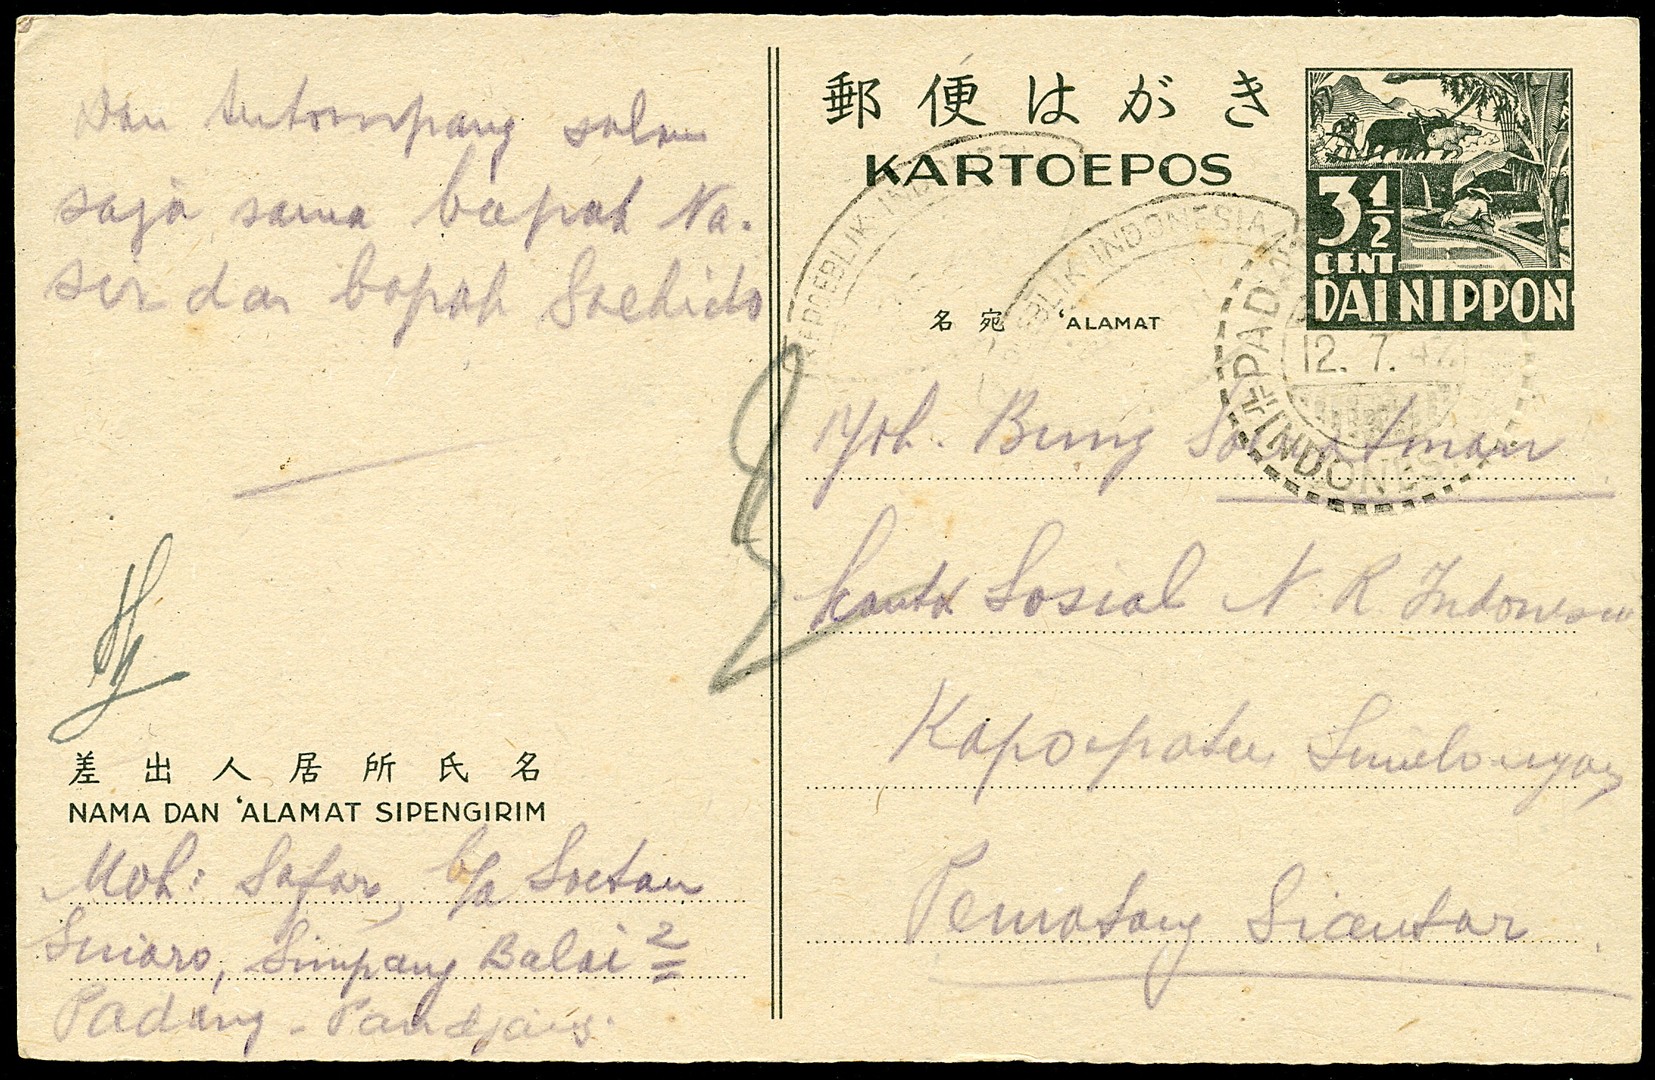 Dan tutompang salam
saja sama bapak Na-
sir dan bapak Soehido
差出人居所氏名
NAMA DAN 'ALAMAT SIPENGIRIM
Moh: Safar, b/a Soetan
Sinaro, Simpang Balai 2
Padang-Pandjang.
郵便はがき
KARTOEPOS
3 1/2
CENT
DAI NIPPON
REPOEBLIK INDONESIA
REPOEBLIK INDONESIA
名宛 'ALAMAT
PADA
12.7.47
INDONES
Bung
Kantor Sosial N. R. Indonesia
Kaboepaten Simeloengoen
Pematang Siantar